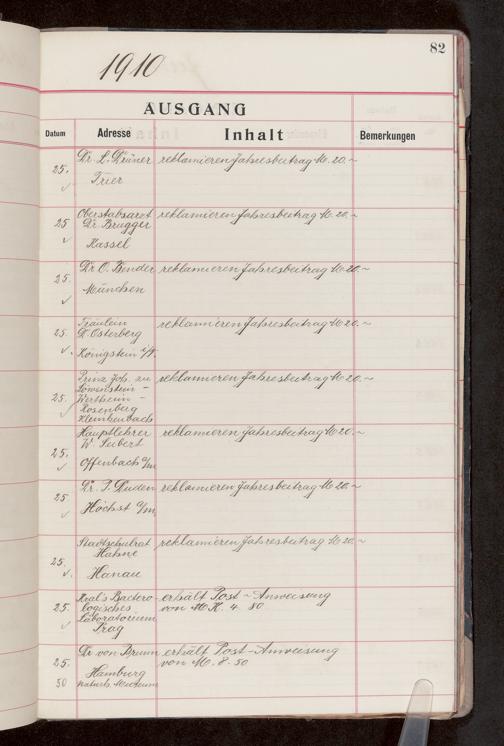 82
1910
AUSGANG
Datum Adresse Inhalt Bemerkungen
25. Dr. L. Drüner reklamieren Jahresbeitrag M. 20.~
Trier
Oberstabsarzt reklamieren Jahresbeitrag M. 20.~
25 Dr. Brugger
Kassel
Dr. O. Bender reklamieren Jahresbeitrag M. 20.~
25.
München
Fräulein reklamieren Jahresbeitrag M. 20.~
25. Osterberg
Königstein i/T.
Prinz Joh. zu reklamieren Jahresbeitrag M. 20.~
Löwenstein-
25. Wertheim-
Rosenberg
Kleinheubach
Hauptlehrer reklamieren Jahresbeitrag M. 20.~
W. Seibert
25.
Offenbach a/m
Dr. P. Duden reklamieren Jahresbeitrag M. 20.~
25
Höchst a/m
Stadtschulrat reklamieren Jahresbeitrag M. 20.~
Hahne
25.
Hanau
Kral's Bacterio- erhält Post-Anweisung
25. logisches von M. K. 4. 80
Laboratorium
Prag
Dr. von Brunn erhält Post-Anweisung
25. von M. 8. 50
Hamburg
50 Naturh. Museum